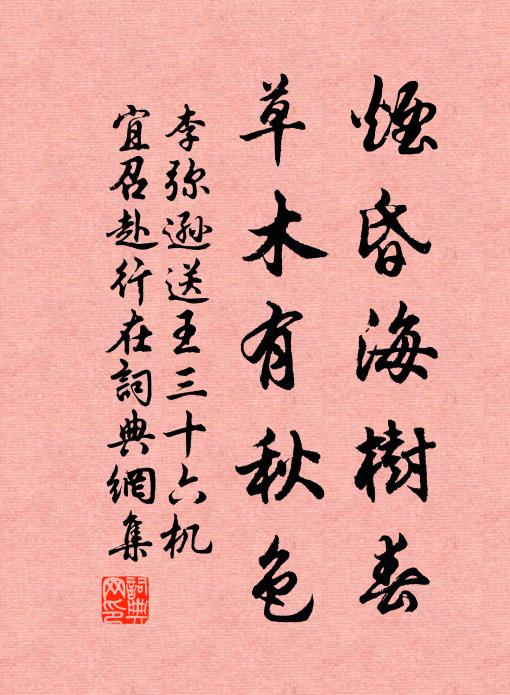 煙昏海樹春
草木有秋色
李弥遜送王三十六机
宜召赴行在詞典網集
詞典網印